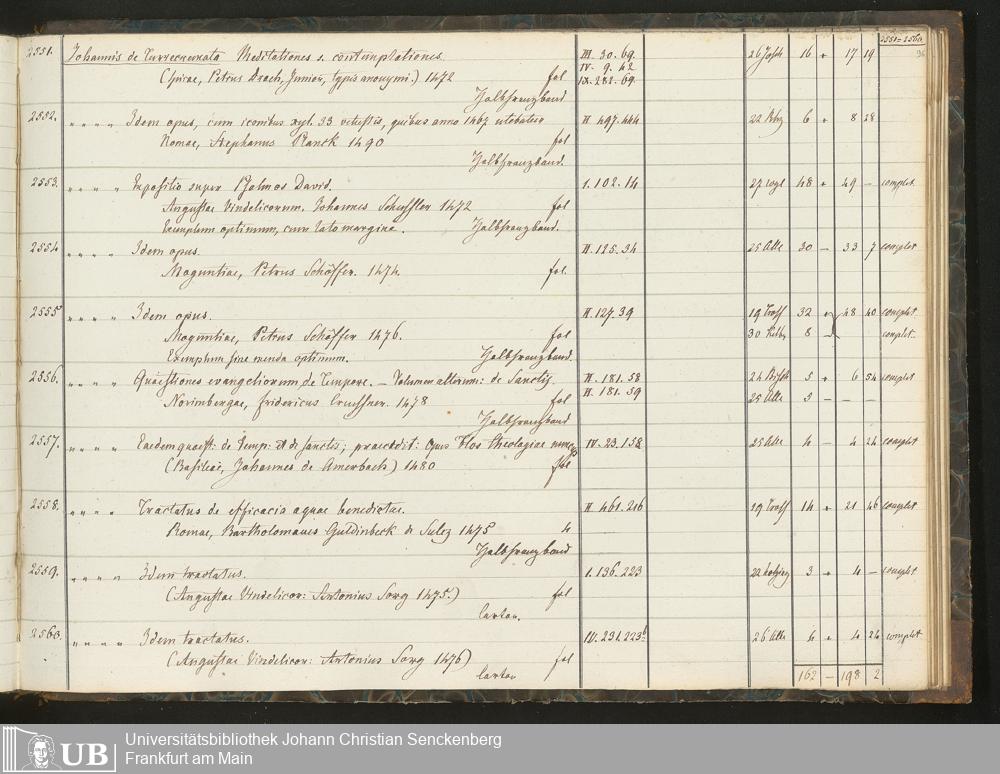 2551=2560.
2551. Johannis de Turrecremata Meditationes s. contemplationes. III. 30. 69. 26 16 + 17 19
(Spirae, Petrus Drach, Junior, typis anonymi.) 1472 fol IV. 9. 42
Halbfranzband IX. 282. 69.
2552. " " " " Idem opus, cum iconibus xyl. 33 vetustis, quibus anno 1467 utebatur II. 497. 444 22 6 + 8 28
Romae, Stephanus Planck 1490 fol
Halbfranzband.
2553. " " " " Expositio super Psalmos David. I. 102. 14 27 48 + 49 – complet.
Augustae Vindelicorum. Johannes Schussler 1472 fol
Exemplum optimum, cum lato margine. Halbfranzband.
2554 " " " " Idem opus. II. 125. 34 25 30 – 33 7 complet
Moguntiae, Petrus Schöffer. 1474. fol.
2555 " " " " Idem opus. II. 127. 39 19 32 + 48 40 complet.
Moguntiae, Petrus Schöffer 1476. fol 30 8 – complet.
Exemplum sine menda optimum. Halbfranzband.
2556. " " " " Quaestiones evangeliorum de Tempore. – Volumen alterum: de Sanctis. II. 181. 58 24 5 + 6 54 complet
Norimbergae, Fridericus Creussner. 1478 fol II. 181. 59 25 5 – – –
Halbfranzband
2557. " " " " Eaedem quaest: de Temp: et de Sanctis; praecedit: Opus Flos theologiae IV. 23. 158 25 4 – 4 24 complet
(Basileae, Johannes de Amerbach) 1480 fol
2558. " " " " Tractatus de efficacia aquae benedictae. II. 461. 216 19 14 + 21 46 complet
Romae, Bartholomaeus Guldinbeck de Sulcz 1475 4
Halbfranzband
2559. " " " " Idem tractatus. I. 136. 223 22 3 + 4 – complet
(Augustae Vindelicor: Antonius Sorg 1475.) fol
Carton.
2560. " " " " Idem tractatus. IV. 231. 223b 26 6 + 4 24 complet
(Augustae Vindelicor: Antonius Sorg 1476) fol
Carton
162 – 198 2
UB
Universitätsbibliothek Johann Christian Senckenberg
Frankfurt am Main